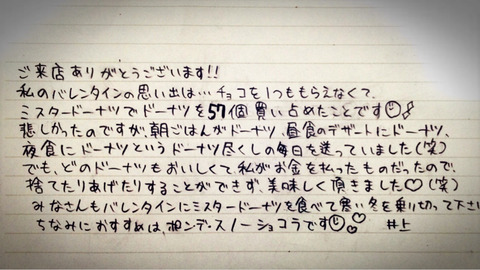 ご来店ありがとうございます!!
私のバレンタインの思い出は…チョコを1つももらえなくて、
ミスタードーナツでドーナツを57個買い占めたことです
悲しかったのですが、朝ごはんがドーナツ、昼食のデザートにドーナツ、
夜食にドーナツというドーナツ尽くしの毎日を送っていました(笑)
でも、どのドーナツもおいしくて、私がお金を払ったものだったので、
捨てたりあげたりすることができず、美味しく頂きました♡(笑)
みなさんもバレンタインにミスタードーナツを食べて寒い冬を乗り切って下さい
ちなみにおすすめは、ポンデ・スノーショコラです♡ 井上